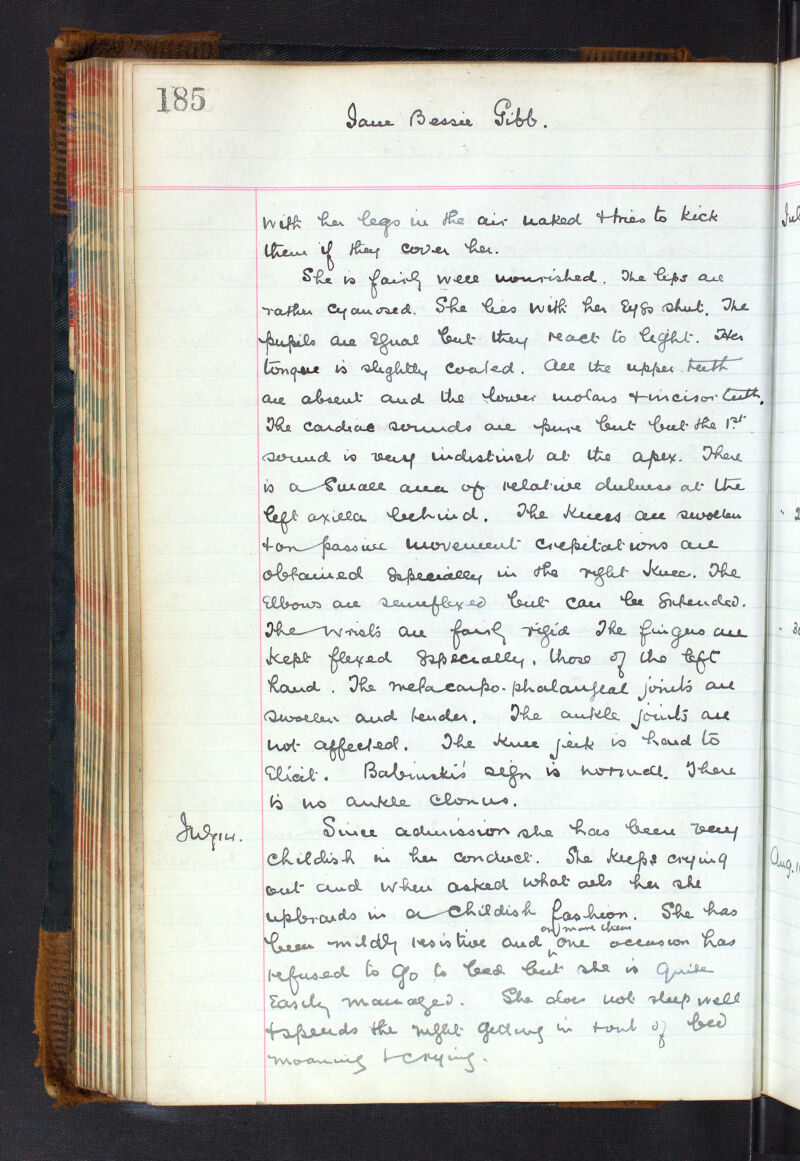 185
Jane Bessie Gibb.
with her legs in the air naked & tries to kick
them if they cover her.
She is fairly well nourished. The lips are
rather cyanosed. She lies with her Eyes shut. The
pupils are Equal but they react to light. Her
tongue is slightly coated. All the upper teeth
are absent and the lower molars & incisor teeth.
The cardiac sounds are pure but but the 1st
sound is very indistinct at the apex. There
is a Small area of relative dulness at the
left axilla behind. The Knees are swollen
& on passive movement crepitations are
obtained Especially in the right Knee. The
Elbows are semiflexed but can be Extended.
The wrists are fairly rigid The fingers are
Kept flexed Especially, those of the left
hand. The metacarpo-phalangeal joints are
swollen and tender. The ankle joints are
not affected. The Knee jerk is hard to
Elicit. Babinski's sign is normal. There
is no ankle clonus.
July 14. Since admission she has been very
childish in her conduct. She Keeps crying
out and when asked what ails her she
upbraids in a childish fashion. She has
been mildly resistive and on more than one occasion has
refused to go to bed but she is quite
Easily managed. She does not sleep well
& spends the night getting in & out of bed
moaning & crying.
Aug.